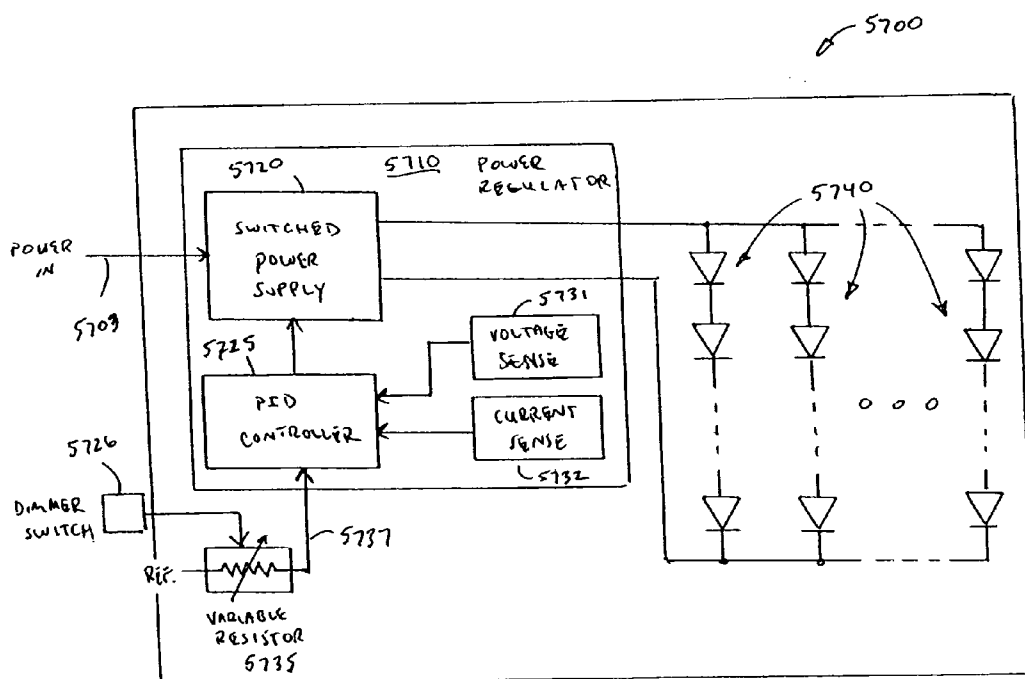 5700
5720
5710
POWER
REGULATOR
5740
SWITCHED
POWER
SUPPLY
POWER
IN
5703
5731
VOLTAGE
SENSE
5725
PID
CONTROLLER
CURRENT
SENSE
5732
5726
DIMMER
SWITCH
5737
REF.
VARIABLE
RESISTOR
5735